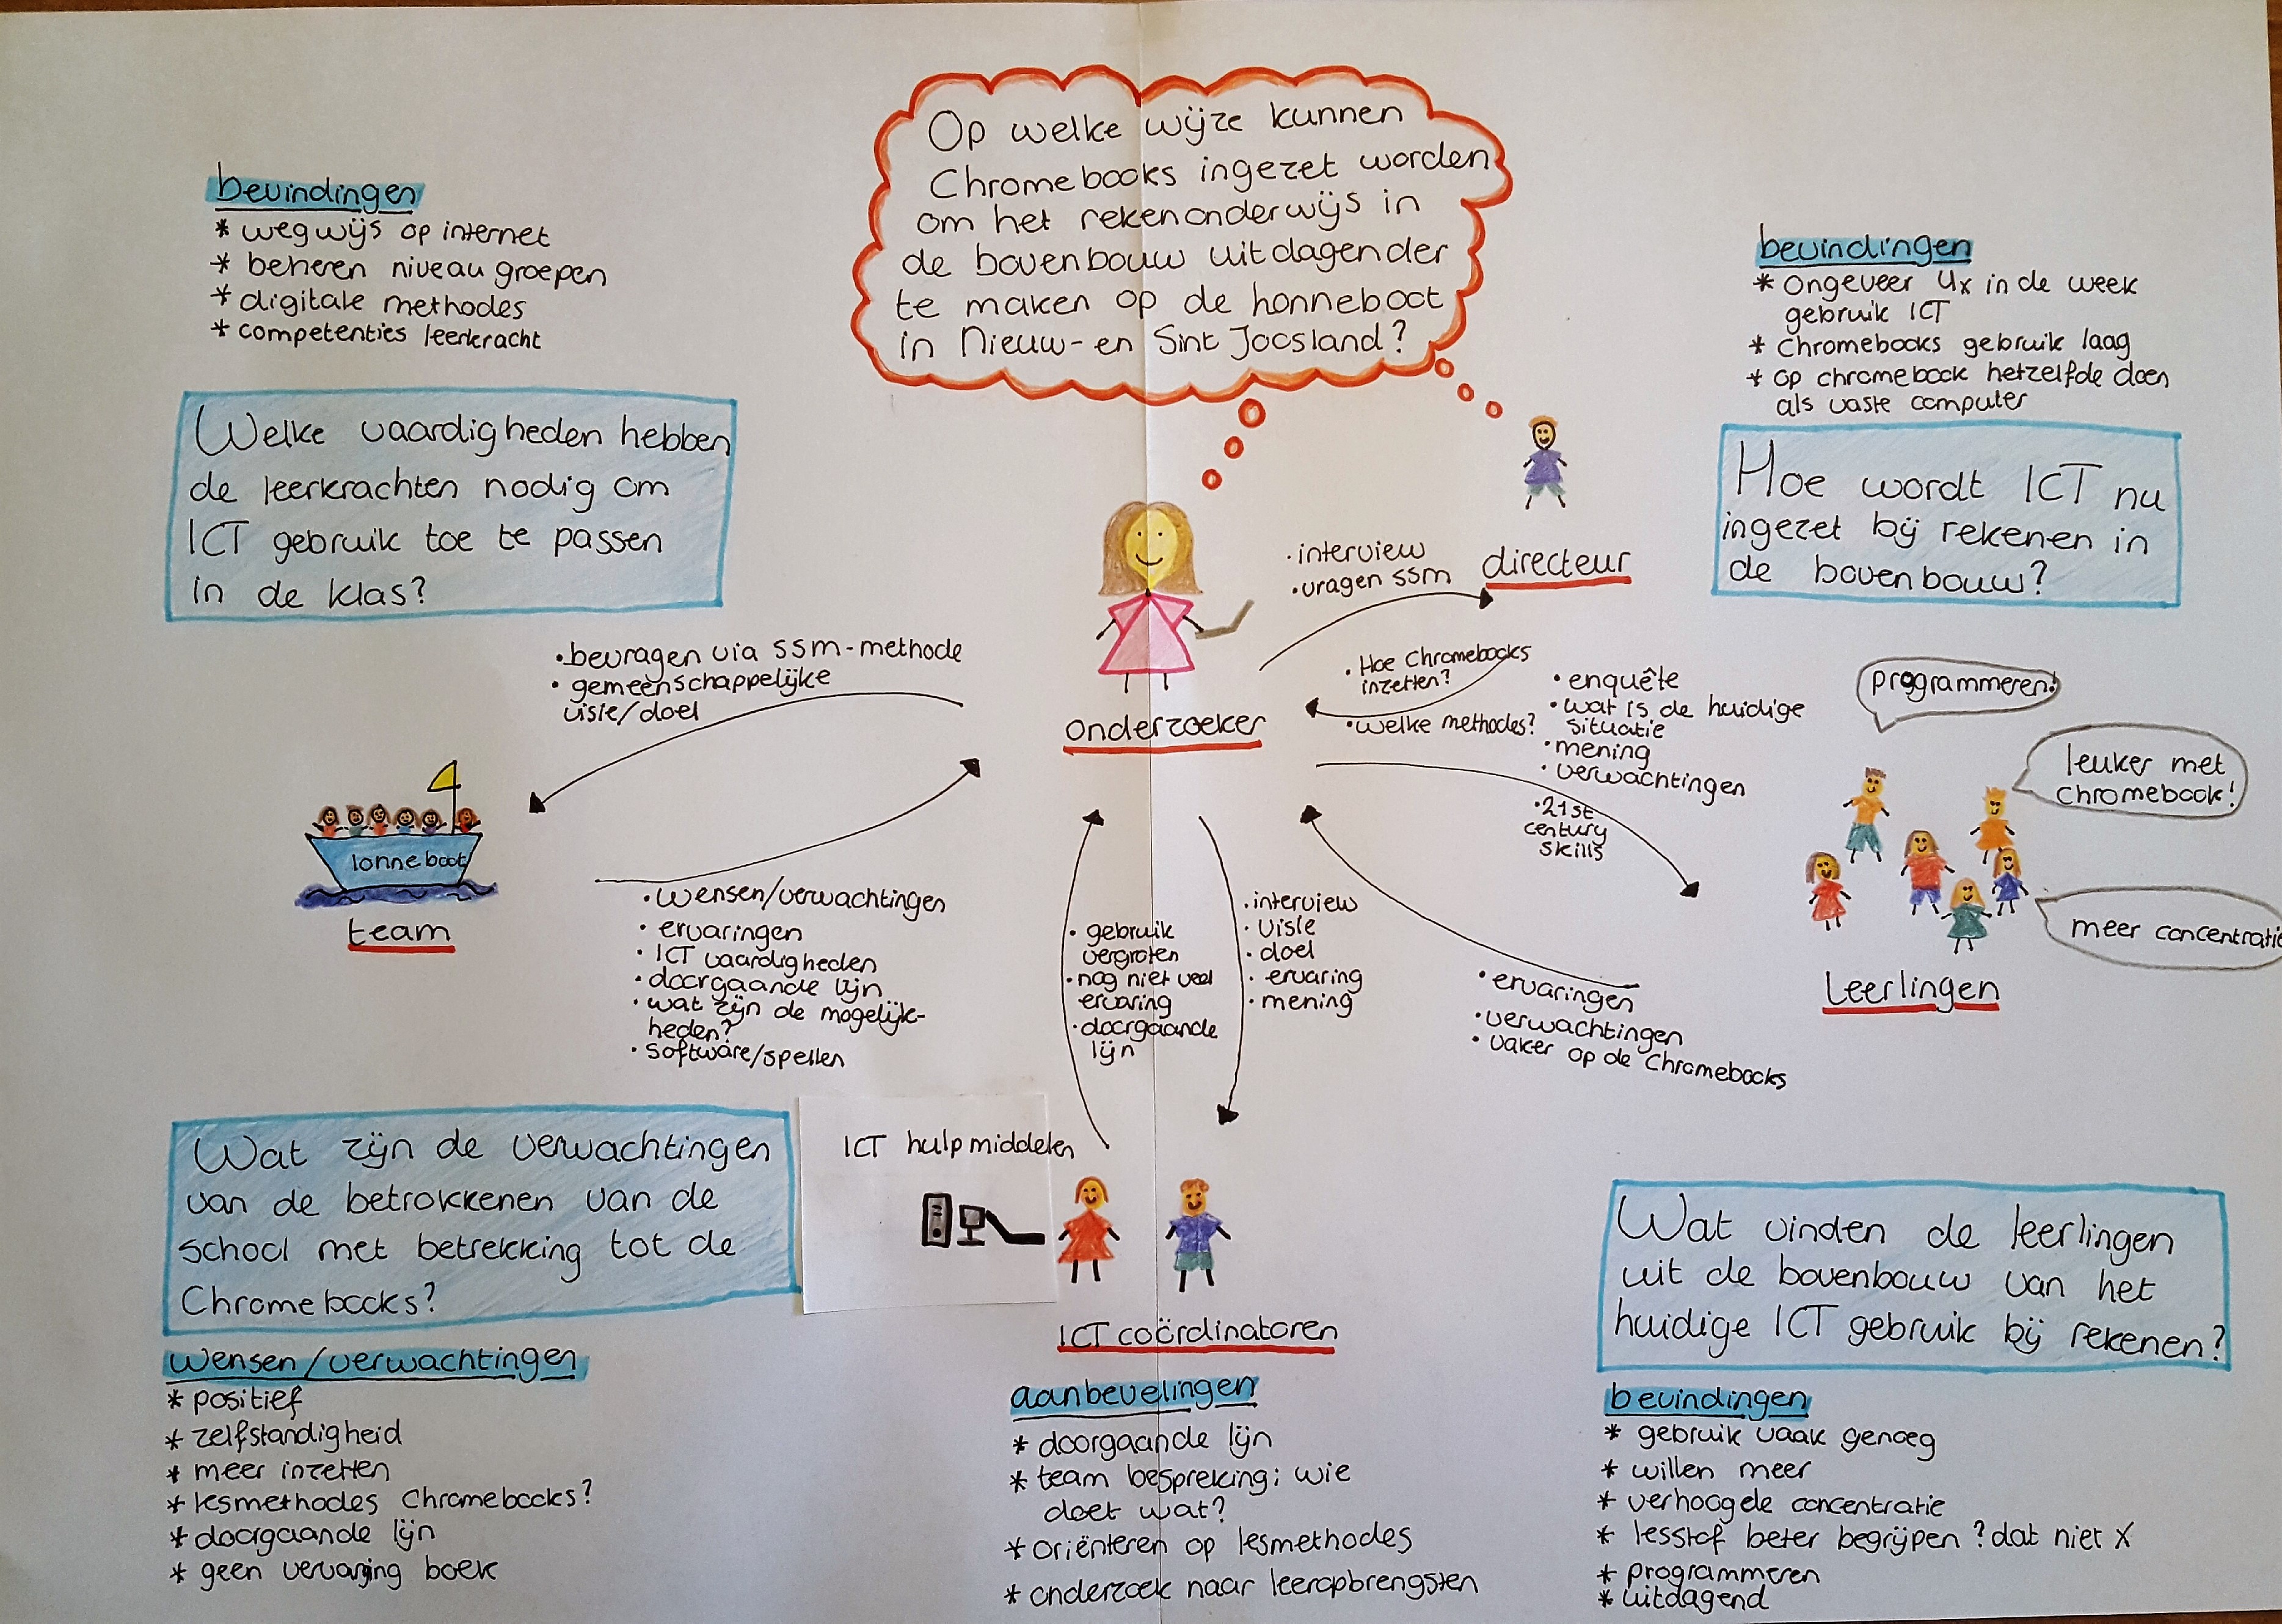 Op welke wijze kunnen
Chromebooks ingezet worden
om het rekenonderwijs in
de bovenbouw uitdagender
te maken op de honneboot
in Nieuw- en Sint Joosland?
bevindingen
* wegwijs op internet
* beheren niveau groepen
* digitale methodes
* competenties leerkracht
Welke vaardigheden hebben
de leerkrachten nodig om
ICT gebruik toe te passen
in de klas?
bevindingen
* ongeveer 4x in de week
gebruik ICT
* chromebooks gebruik laag
* op chromebook hetzelfde doen
als vaste computer
Hoe wordt ICT nu
ingezet bij rekenen in
de bovenbouw?
• interview
• vragen ssm
directeur
• Hoe Chromebooks
inzetten?
• welke methodes?
onderzoeker
• bevragen via ssm-methode
• gemeenschappelijke
visie/doel
lonneboot
team
• wensen/verwachtingen
• ervaringen
• ICT vaardigheden
• doorgaande lijn
• wat zijn de mogelijk-
heden?
• software/spellen
• enquête
• wat is de huidige
situatie
• mening
• verwachtingen
• 21st
century
skills
programmeren!
leuker met
chromebook!
meer concentratie
Leerlingen
• ervaringen
• verwachtingen
• vaker op de Chromebooks
• gebruik
vergroten
• nog niet veel
ervaring
• doorgaande
lijn
• interview
• visie
• doel
• ervaring
• mening
ICT hulpmiddelen
ICT coördinatoren
Wat zijn de verwachtingen
van de betrokkenen van de
school met betrekking tot de
Chromebooks?
wensen/verwachtingen
* positief
* zelfstandigheid
* meer inzetten
* lesmethodes Chromebooks?
* doorgaande lijn
* geen vervanging boek
aanbevelingen
* doorgaande lijn
* team bespreking; wie
doet wat?
* oriënteren op lesmethodes
* onderzoek naar leeropbrengsten
Wat vinden de leerlingen
uit de bovenbouw van het
huidige ICT gebruik bij rekenen?
bevindingen
* gebruik vaak genoeg
* willen meer
* verhoogde concentratie
* lesstof beter begrijpen? dat niet X
* programmeren
* uitdagend